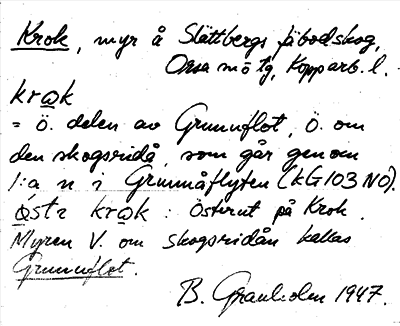 Krok, myr å Slättbergs fäbodskog,
Orsa m ö tg, Kopparb. l.
krɷk
= ö. delen av Grunuflot, ö. om
den skogsridå, som går genom
1:a n i Grunuåflyten (kG 103 NO).
ɷ́stɩ krɷk : Österut på Krok.
Myren V. om skogsridån kallas
Grunuflot.
B. Granholm 1947.